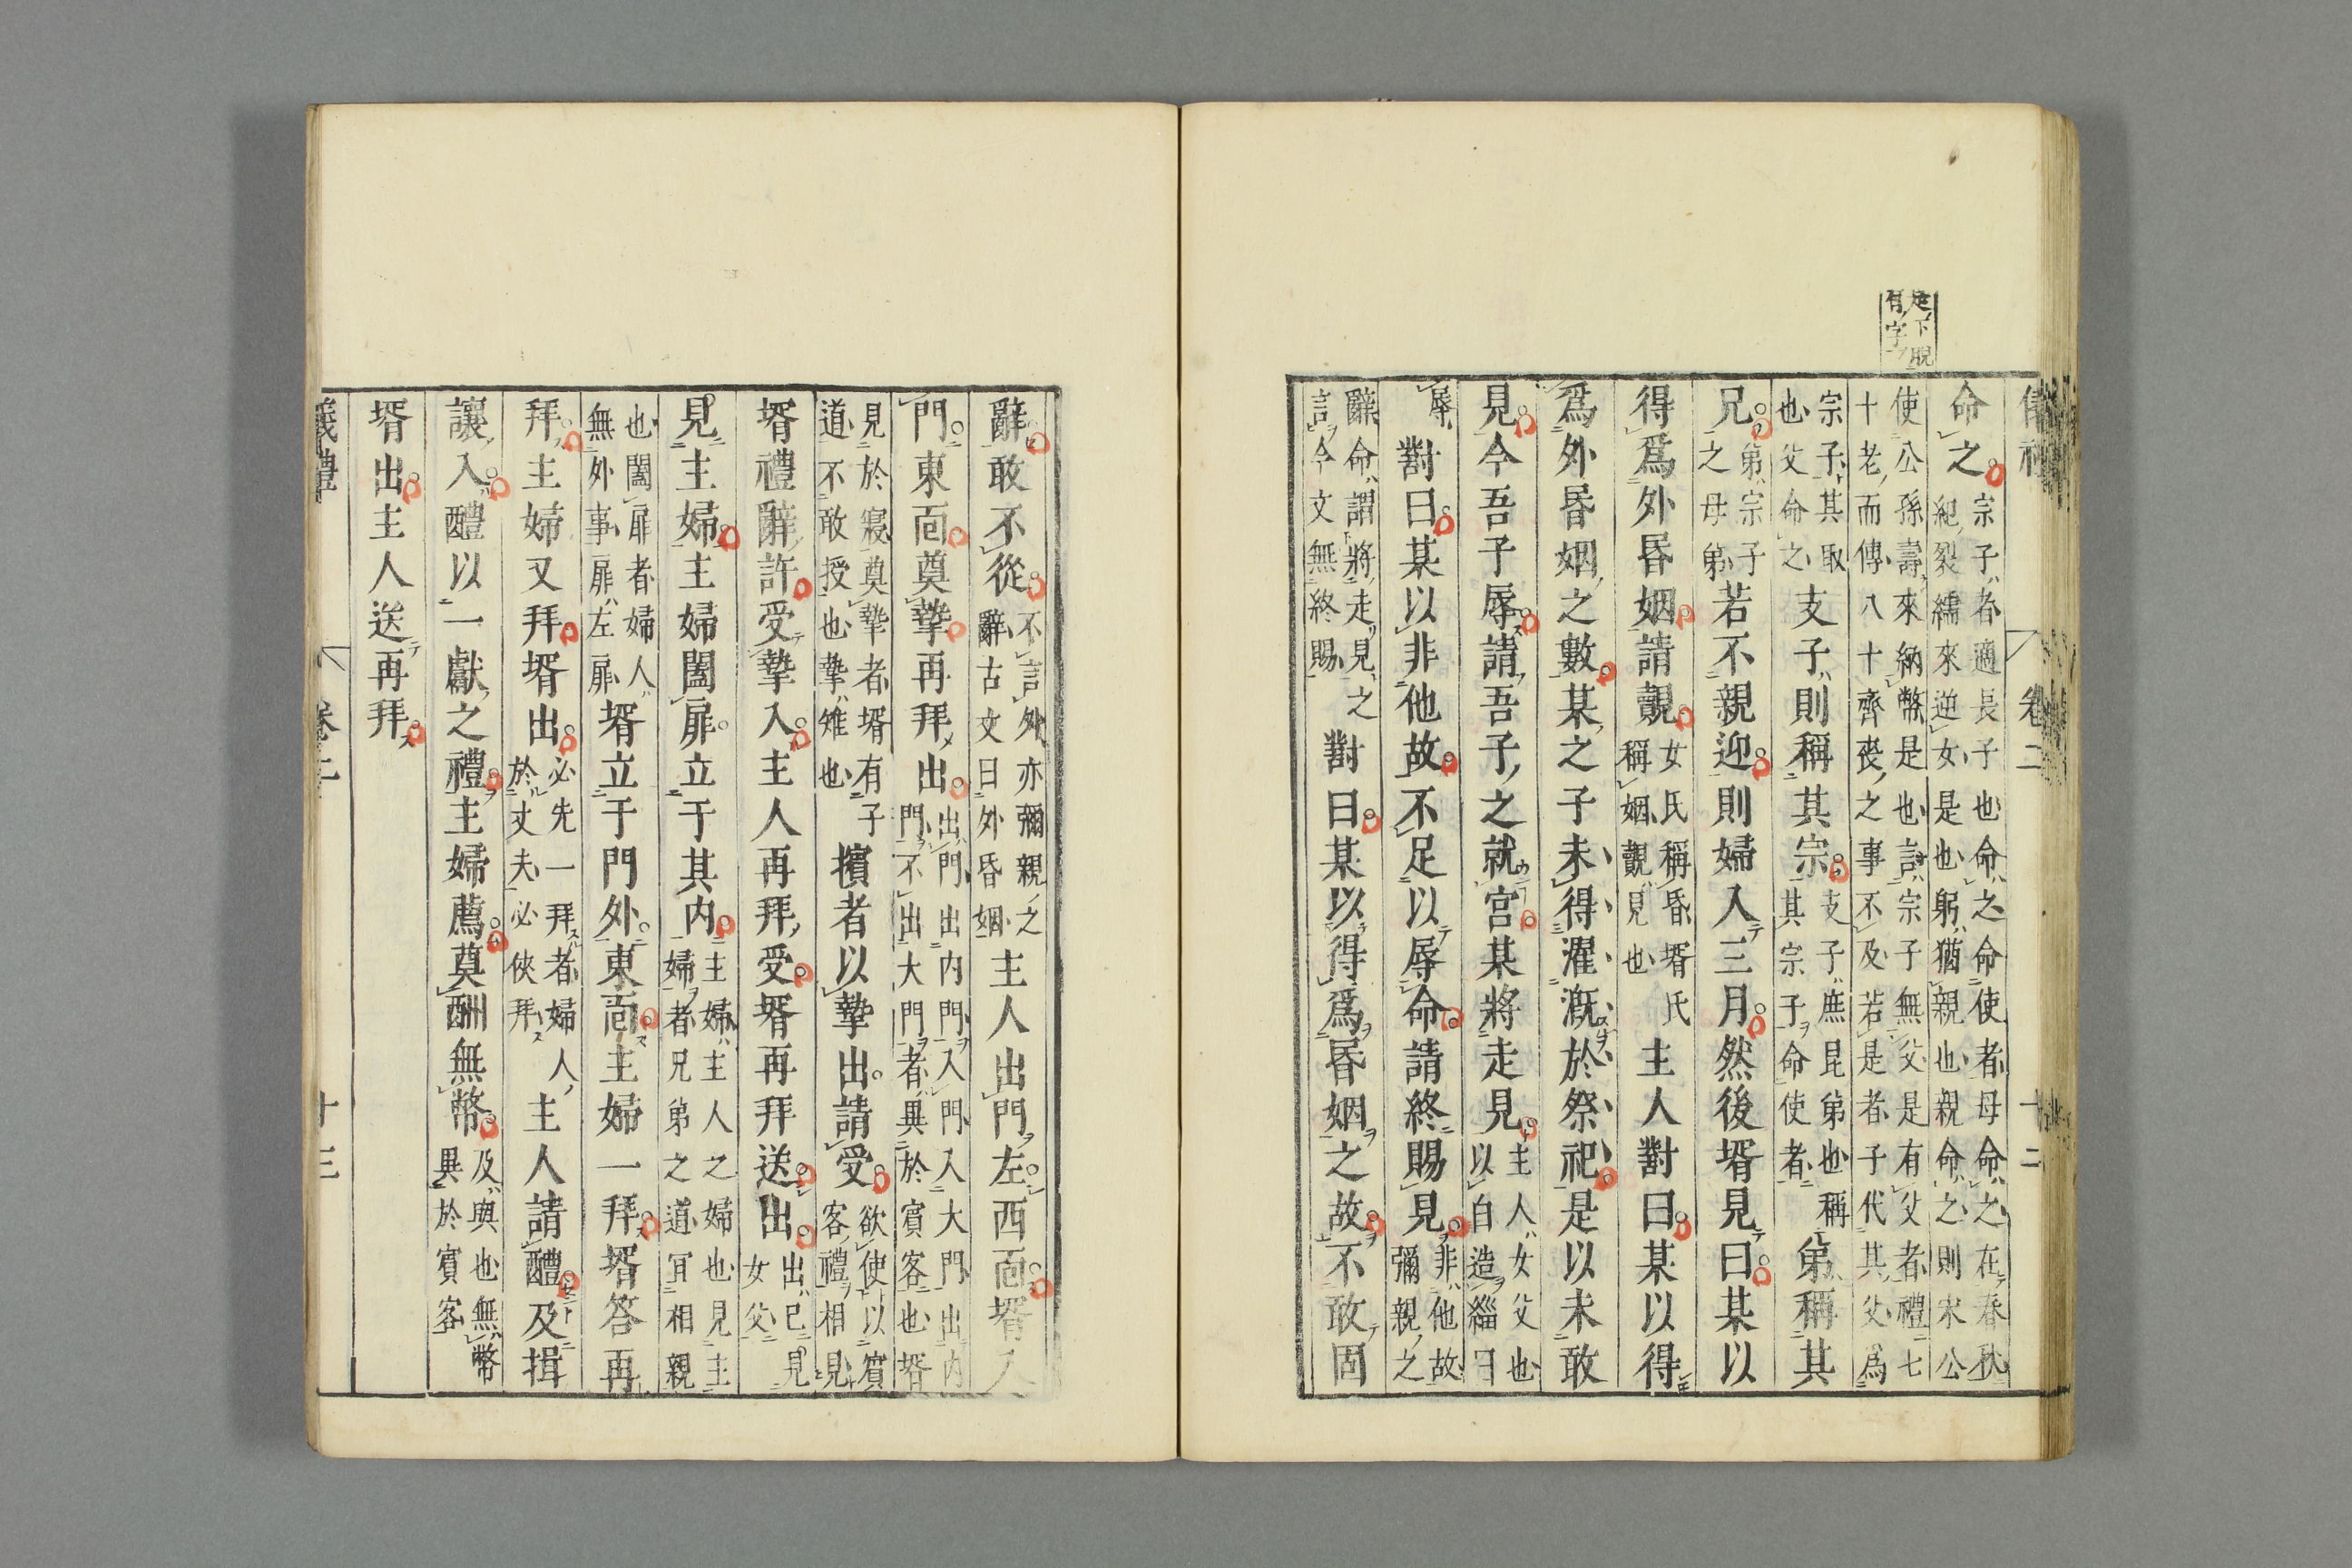 是下脫
有字
卷二 十二
命之宗子者適長子也命之命使者母命之在春秋紀裂繻來逆女是也躬猶親也親命之則宋公
使公孫壽來納幣是也言宗子無父是有父者禮七十老而傳八十齊喪之事不及若是者子代其父爲
宗子其取也父命之支子則稱其宗支子庶昆弟也稱其宗子命使者弟稱其
兄弟宗子之母弟若不親迎則婦入三月然後壻見曰某以
得爲外昏姻請覿女氏稱昏壻氏稱姻覿見也主人對曰某以得
爲外昏姻之數某之子未得濯漑於祭祀是以未敢
見今吾子辱請吾子之就宮某將走見主人女父也以白造緇曰
辱對曰某以非他故不足以辱命請終賜見非他故彌親之
辭命謂將走見之言今文無終賜對曰某以得爲昏姻之故不敢固
辭敢不從不言外亦彌親之辭古文曰外昏姻主人出門左西面壻入
門東面奠摯再拜出出門出内門入門入大門出内門不出大門者異於賓客也壻
見於寢奠摯者壻有子道不敢授也摯雉也擯者以摯出請受欲使以賓客禮相見
壻禮辭許受摯入主人再拜受壻再拜送出出已見女父
見主婦主婦闔扉立于其内主婦主人之婦也見主婦者兄弟之道宜相親
也闔扉者婦人無外事扉左扉壻立于門外東面主婦一拜壻答再
拜主婦又拜壻出必先一拜者婦人於丈夫必俠拜主人請醴及揖
讓入醴以一獻之禮主婦薦奠酬無幣及與也無幣異於賓客
壻出主人送再拜
儀禮 卷二 十三